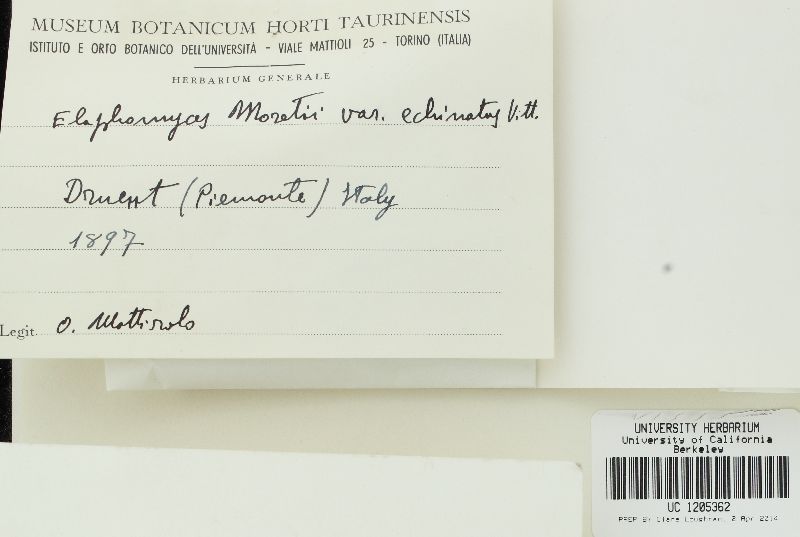 MUSEUM BOTANICUM HORTI TAURINENSIS
ISTITUTO E ORTO BOTANICO DELL'UNIVERSITÀ - VIALE MATTIOLI 25 - TORINO (ITALIA)
HERBARIUM GENERALE
Elaphomyces Moretii var. echinatus Vitt.
Druent (Piemonte) Italy
1897
Legit. O. Mattirolo
UNIVERSITY HERBARIUM
University of California
Berkeley
UC 1205362
PREP BY Ciara Loughran, 2 Apr 2014